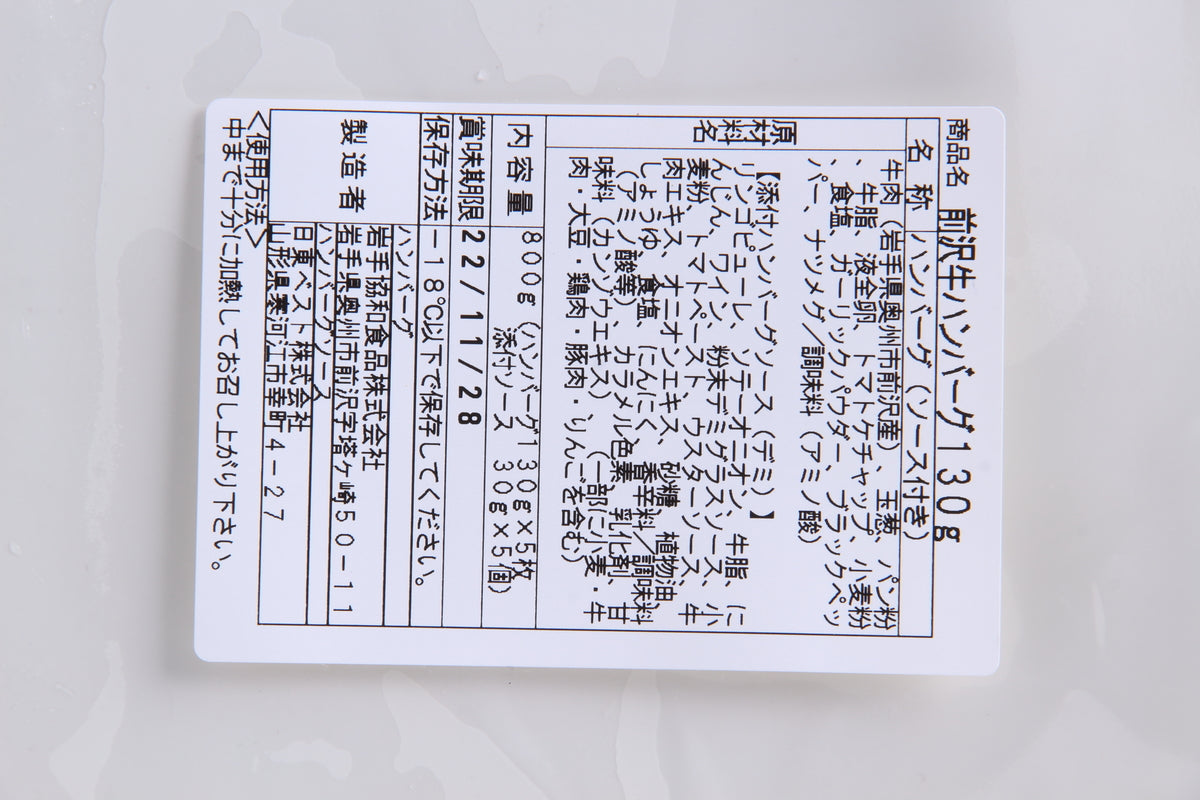 商品名 前沢牛ハンバーグ130g
名 称 ハンバーグ(ソース付き)
原材料名
牛肉(岩手県奥州市前沢産)、玉葱、パン粉
、牛脂、液全卵、トマトケチャップ、小麦粉
、食塩、ガーリックパウダー、ブラックペッ
パー、ナツメグ/調味料(アミノ酸)
【添付ハンバーグソース(デミ)】
リンゴピューレ、ソテーオニオン、牛脂、に
んじん、ワイン、粉末デミグラスソース、小
麦粉、トマトペースト、ウスターソース、牛
肉エキス、オニオンエキス、砂糖、植物油、
しょうゆ、食塩、にんにく、香辛料/調味料
(アミノ酸等)、カラメル色素、乳化剤、甘
味料(カンゾウエキス)(一部に小麦・牛
肉・大豆・鶏肉・豚肉・りんごを含む)
内容量 800g(ハンバーグ130g×5枚
添付ソース 30g×5個)
賞味期限 22/11/28
保存方法 -18℃以下で保存してください。
製造者
ハンバーグ
岩手協和食品株式会社
岩手県奥州市前沢字塔ヶ崎50-11
ハンバーグソース
日東ベスト株式会社
山形県寒河江市幸町4-27
<使用方法>
中まで十分に加熱してお召し上がり下さい。